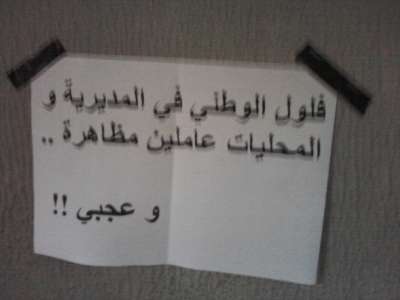 فلول الوطني في المديرية و
المحليات عاملين مظاهرة ..
و عجبي !!